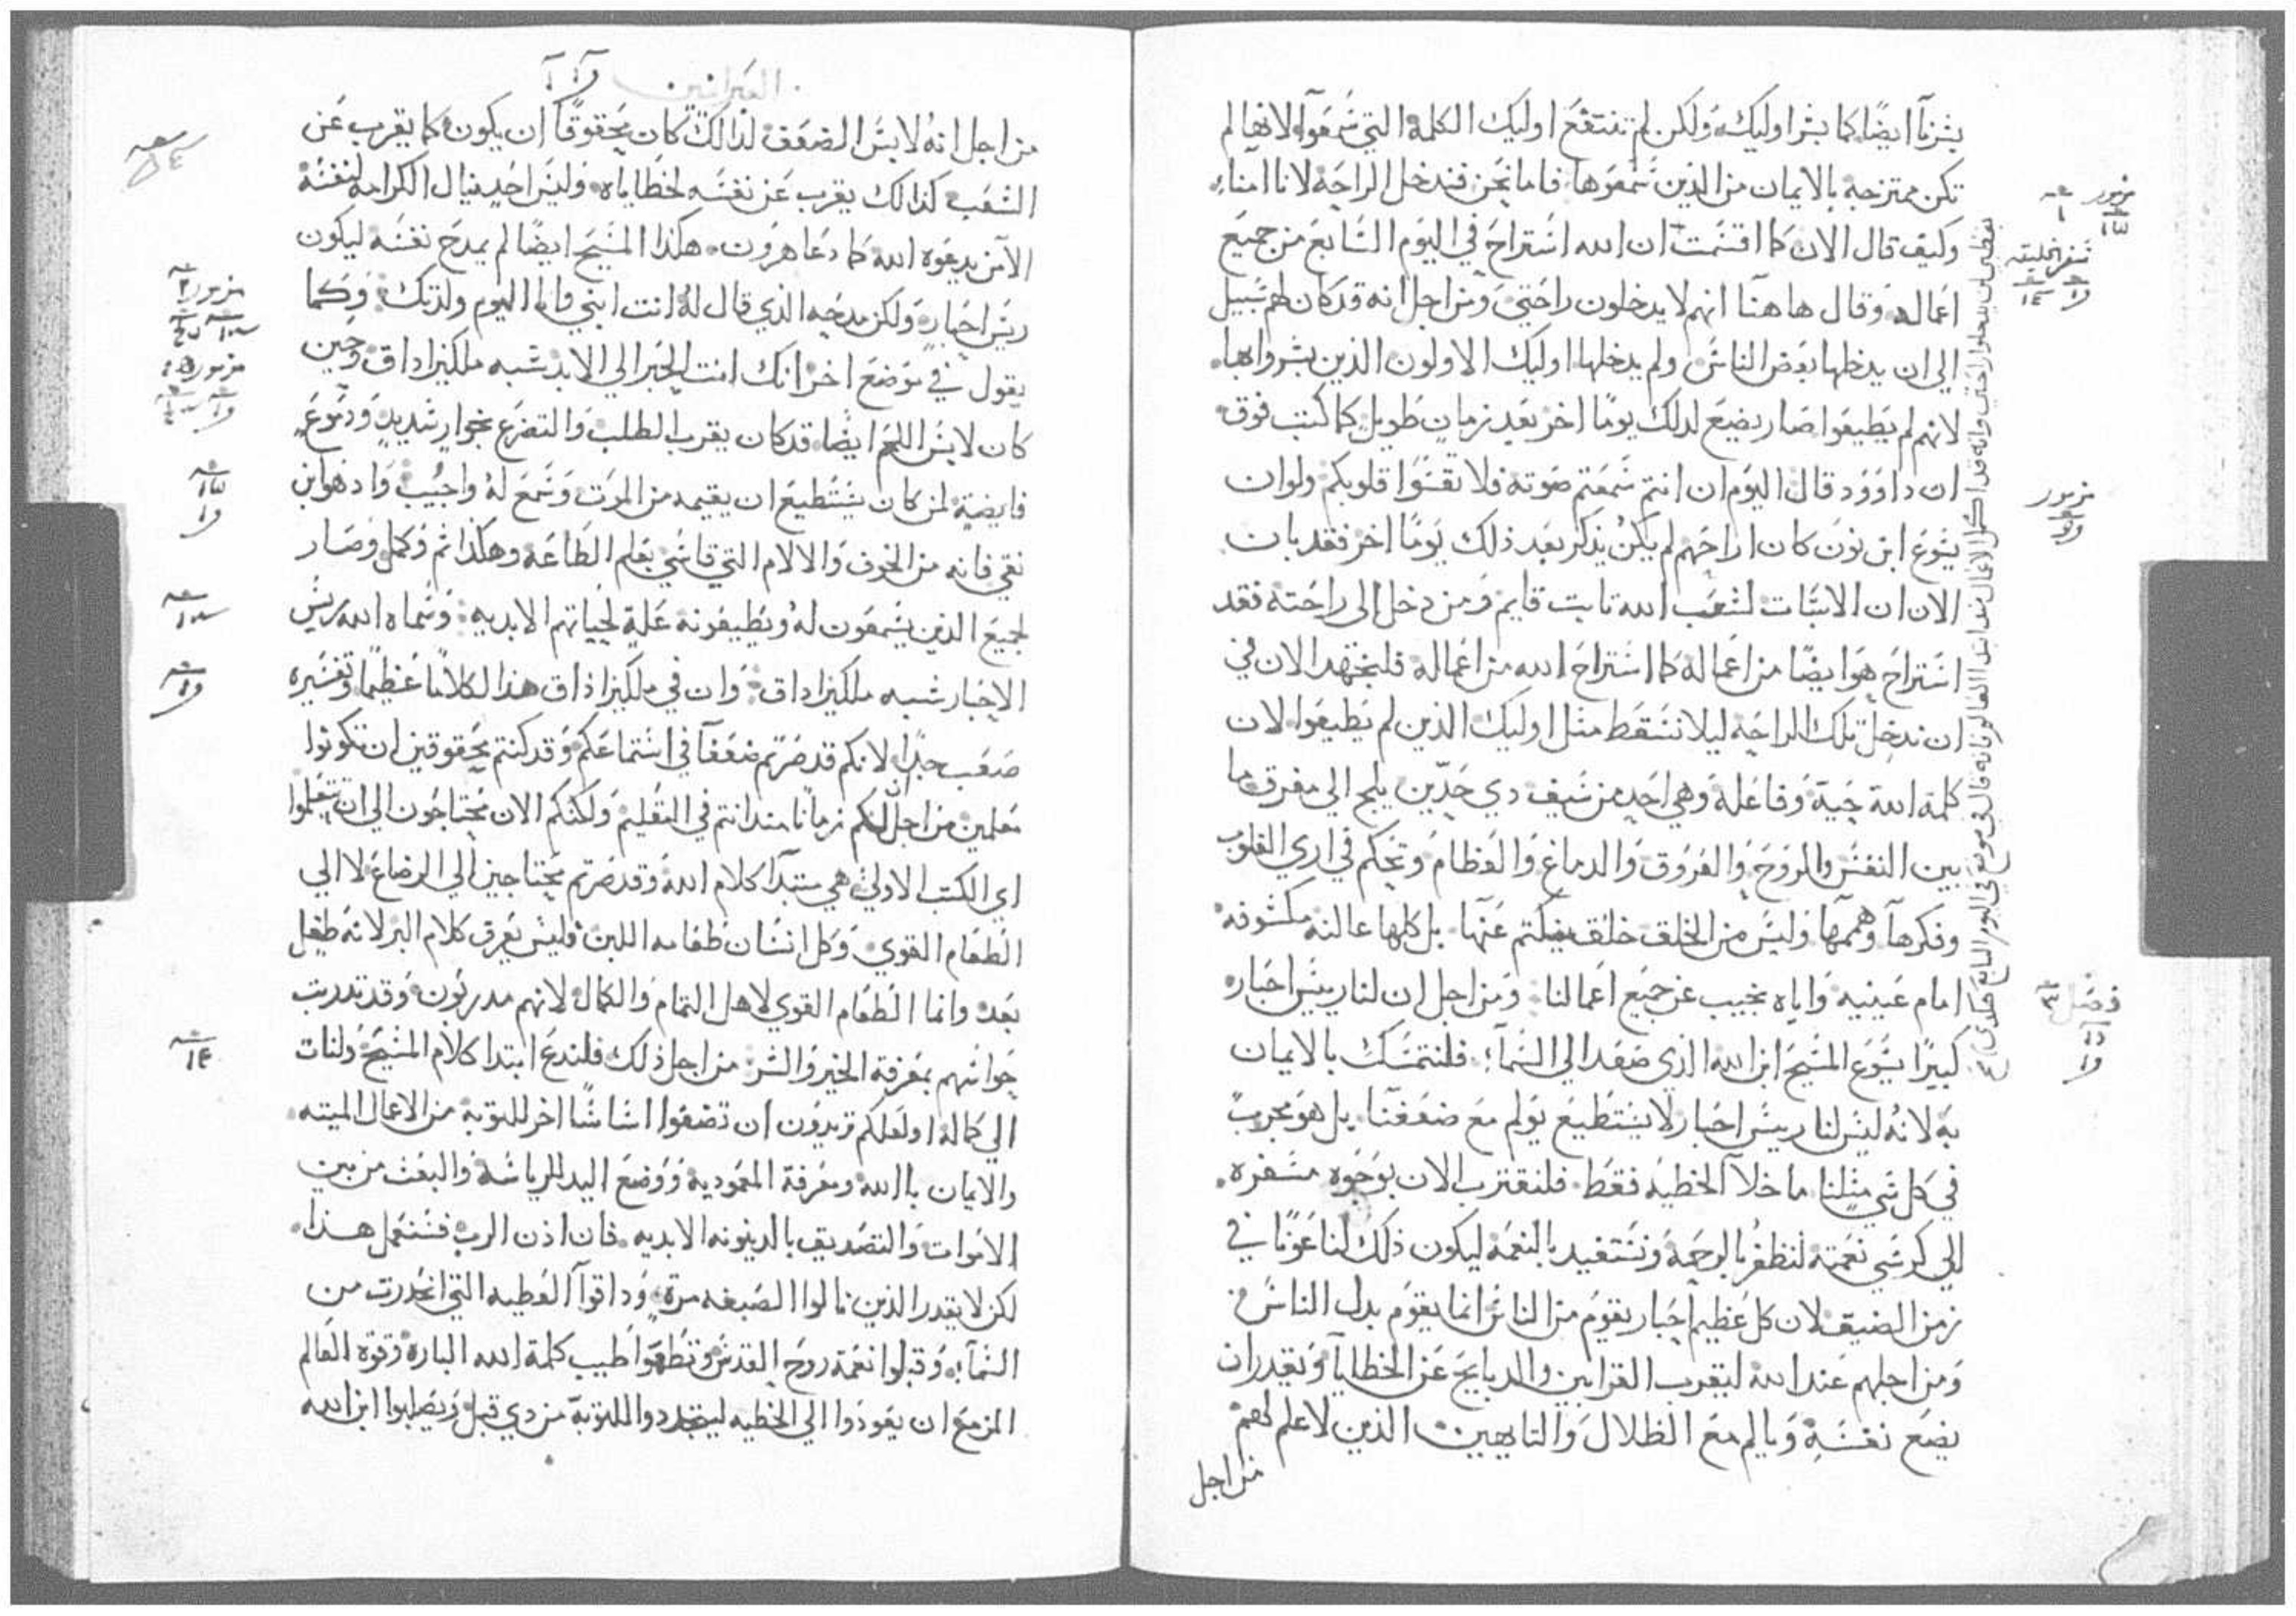 بشرنا ايضًا كما بشر اوليك ولكن لم تنتفع اوليك الكلمة التي سمعوا لانها لم
تكن ممتزجه بالايمان من الذين سمعوها فاما نحن فندخل الراحه لانا امناء
وكيف قال الان كما اقسمت ان الله استراح في اليوم السابع من جميع
اعماله وقال هاهنا انهم لا يدخلون راحتي ومن اجل انه قد كان لهم سبيل
الي ان يدخلها بعض الناس ولم يدخلها اوليك الاولون الذين بشروا بها
لانهم لم يطيعوا صار يضع لدلك يومًا اخر بعد زمان طويل كما كتب فوق
ان داوود قال اليوم ان انتم سمعتم صوته فلا تقسوا قلوبكم ولو ان
يشوع ابن نون كان اراحهم لم يكن يذكر بعد ذلك يومًا اخر فقد بان
الان ان الاسبات لشعب الله تابت قايم ومن دخل الى راحته فقد
استراح هو ايضًا من اعماله كما استراح الله من اعماله فلنجتهد الان في
ان ندخل تلك الراحه ليلا نسقط مثل اوليك الذين لم يطيعوا لان
كلمة الله حية وفاعلة وهي احد من سيف دي حدين يلج الي مفرق ما
بين النفس والروح والعروق والدماغ والعظام وتحكم في اري القلوب
وفكرها وهممها وليس من الخلق خلق يكتم عنها بل كلها عالنه مكشوفه
امام عينيه واياه نجيب عن جميع اعمالنا ومن اجل ان لنا ريس احبار
كبيرًا يشوع المسيح ابن الله الذي صعد الي السماء فلنتمسك بالايمان
به لانه ليس لنا ريس احبار لا يستطيع يولم مع ضعفنا بل هو مجرب
في كل شي مثلنا ما خلا الخطيه فقط فلنقترب الان بوجوه مسفره
الي كرسي نعمته لنظفر بالرحمة ونستفيد بالنعمه ليكون ذلك لنا عونًا في
زمن الضيق لان كل عظيم احبار يقوم من الناس انما يقوم بدل الناس
ومن اجلهم عند الله ليقرب القرابين والدبايح عن الخطايا ويقدر ان
يضع نفسه ويالم مع الظلال والتايهين الذين لا علم لهم
من اجل
مزمور
سفر الخليقه
مزمور
فصل ٣
العبرانيين
من اجل انه لابس الضعف لذالك كان محقوقًا ان يكون كما يقرب عن
الشعب كذالك يقرب عن نفسه لخطاياه وليس احد ينال الكرامه لنفسه
الا من يدعوه الله كما دعا هرون هكذا المسيح ايضًا لم يمدح نفسه ليكون
ريس احبار ولكن مدحه الذي قال له انت ابني وانا اليوم ولدتك وكما
يقول في موضع اخر انك انت الحبر الي الابد شبه ملكيزاداق وحين
كان لابس اللحم ايضًا قد كان يقرب الطلب والتضرع بجوار شديد ودموع
فايضة لمن كان يستطيع ان يقيمه من الموت وسمع له واجيب واد هو ابن
نقي فانه من الخوف والالام التي قاسي بعلم الطاعه وهكذا تم وكمل وصار
لجميع الذين يسمعون له ويطيعونه علة لحياتهم الابديه وسماه الله ريس
الاحبار شبه ملكيزاداق وان في ملكيزاذاق هذا لكلامًا عظيمًا وتفسيره
صعب جدًا لانكم قد صرتم ضعفا في استماعكم وقد كنتم محقوقين ان تكونوا
معلمين من اجل انكم زمانًا منذ انتم في التعليم ولكنكم الان محتاجون الي ان تتعلموا
اي الكتب الاولي هي مبتدا كلام الله وقد صرتم محتاجين الي الرضاع لا الي
الطعام القوي وكل انسان طعامه اللبن فليس يعرق كلام البر لانه طفل
بعد وانما الطعام القوي لاهل التمام والكمال لانهم مدربون وقد تدربت
حواسهم بمعرفة الخير والشر من اجل ذلك فلندع ابتدا كلام المسيح ولنات
الي كماله او لعلكم تريدون ان تضعوا اساسًا اخر للتوبة من الاعمال الميته
والايمان باالله ومعرفة المعمودية ووضع اليد للرياسة والبعث من بين
الاموات والتصديق بالدينونه الابديه فان اذن الرب فسنعمل هذا
لكن لا يقدر الذين نالوا الصبغه مرة وداقوا العطيه التي انحدرت من
السماء وقبلوا نعمة روح القدس وتطعموا طيب كلمة الله البارة وقوة العالم
المزمع ان يعودوا الي الخطيه ليتجددوا للتوبة من دي قبل ويصلبوا ابن الله
مزمور ٢
مزمور